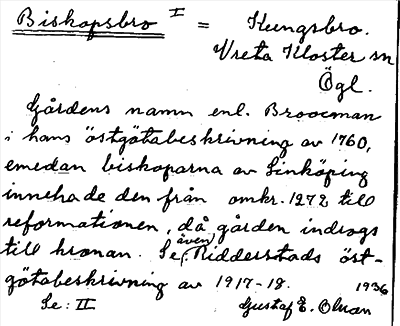 Biskopsbro I = Kungsbro.
Vreta Kloster sn
Ögl.
Gårdens namn enl. Broocman
i hans östgötabeskrivning av 1760,
emedan biskoparna av Linköping
innehade den från omkr. 1272 till
reformationen, då gården indrogs
till kronan. Se även Ridderstads öst-
götabeskrivning av 1917-18. 1936
Se: II Gustaf E. Olsson